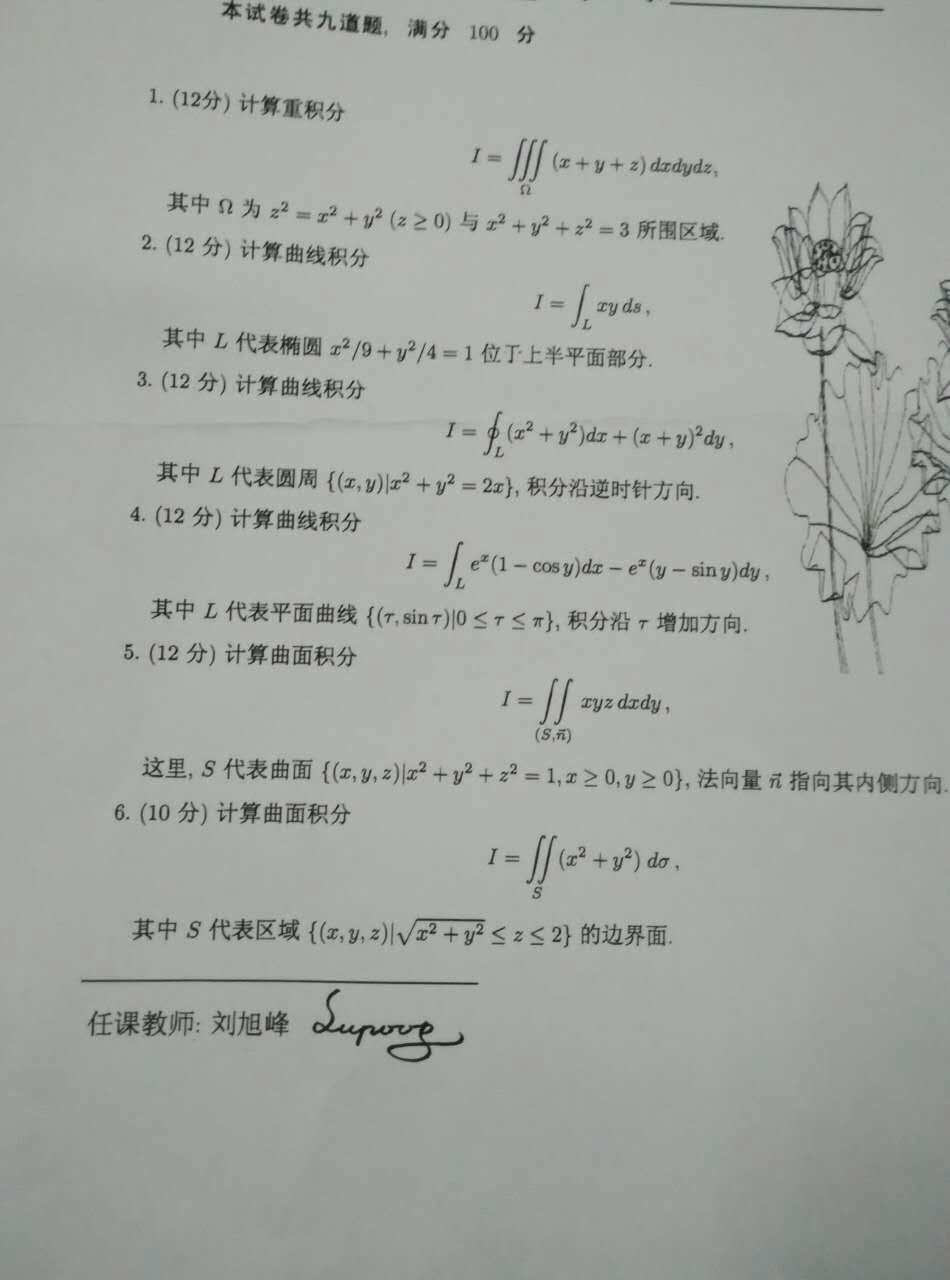 本试卷共九道题, 满分 100 分
1. (12分) 计算重积分
I = ∭_Ω (x + y + z) dxdydz,
其中 Ω 为 z² = x² + y² (z ≥ 0) 与 x² + y² + z² = 3 所围区域.
2. (12 分) 计算曲线积分
I = ∫_L xy ds,
其中 L 代表椭圆 x²/9 + y²/4 = 1 位于上半平面部分.
3. (12 分) 计算曲线积分
I = ∮_L (x² + y²)dx + (x + y)²dy,
其中 L 代表圆周 {(x, y)|x² + y² = 2x}, 积分沿逆时针方向.
4. (12 分) 计算曲线积分
I = ∫_L eˣ(1 − cos y)dx − eˣ(y − sin y)dy,
其中 L 代表平面曲线 {(τ, sin τ)|0 ≤ τ ≤ π}, 积分沿 τ 增加方向.
5. (12 分) 计算曲面积分
I = ∬_(S,n⃗) xyz dxdy,
这里, S 代表曲面 {(x, y, z)|x² + y² + z² = 1, x ≥ 0, y ≥ 0}, 法向量 n⃗ 指向其内侧方向.
6. (10 分) 计算曲面积分
I = ∬_S (x² + y²) dσ,
其中 S 代表区域 {(x, y, z)|√(x² + y²) ≤ z ≤ 2} 的边界面.
任课教师: 刘旭峰